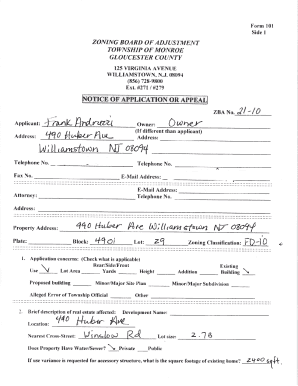 Form 101
Side 1
ZONING BOARD OF ADJUSTMENT
TOWNSHIP OF MONROE
GLOUCESTER COUNTY
125 VIRGINIA AVENUE
WILLIAMSTOWN, N.J. 08094
(856) 728-9800
Ext. #271 / #279
NOTICE OF APPLICATION OR APPEAL
ZBA No. 21-10
Applicant: Frank Andruzzi Owner: Owner
(If different than applicant)
Address: 490 Huber Ave Address:
Williamstown NJ 08094
Telephone No. Telephone No.
Fax No. E-Mail Address:
E-Mail Address:
Attorney: Telephone No.
Address:
Property Address: 490 Huber Ave Williamstown NJ 08094
Plate: Block: 4901 Lot: 29 Zoning Classification: FD-10
1. Application concerns: (Check what is applicable)
Rear/Side/Front Existing
Use ✓ Lot Area Yards Height Addition Building ✓
Proposed building Minor/Major Site Plan Minor/Major Subdivision
Alleged Error of Township Official Other
2. Brief description of real estate affected: Development Name:
Location: 490 Huber Ave
Nearest Cross-Street: Winslow Rd Lot size: 2.78
Does Property Have Water/Sewer? ✓ Private Public
If use variance is requested for accessory structure, what is the square footage of existing home? 2400 sqft.